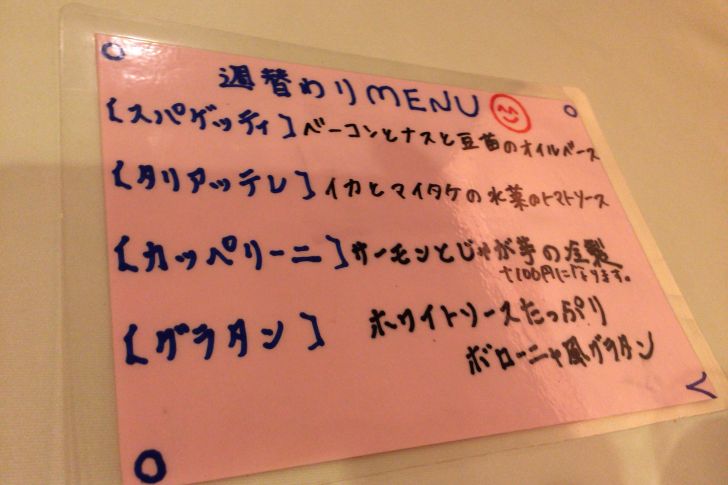 週替わりMENU
[スパゲッティ] ベーコンとナスと豆苗のオイルベース
[タリアッテレ] イカとマイタケの水菜のトマトソース
[カッペリーニ] サーモンとじゃが芋の冷製
+100円になります。
[グラタン] ホワイトソースたっぷり
ボローニャ風グラタン